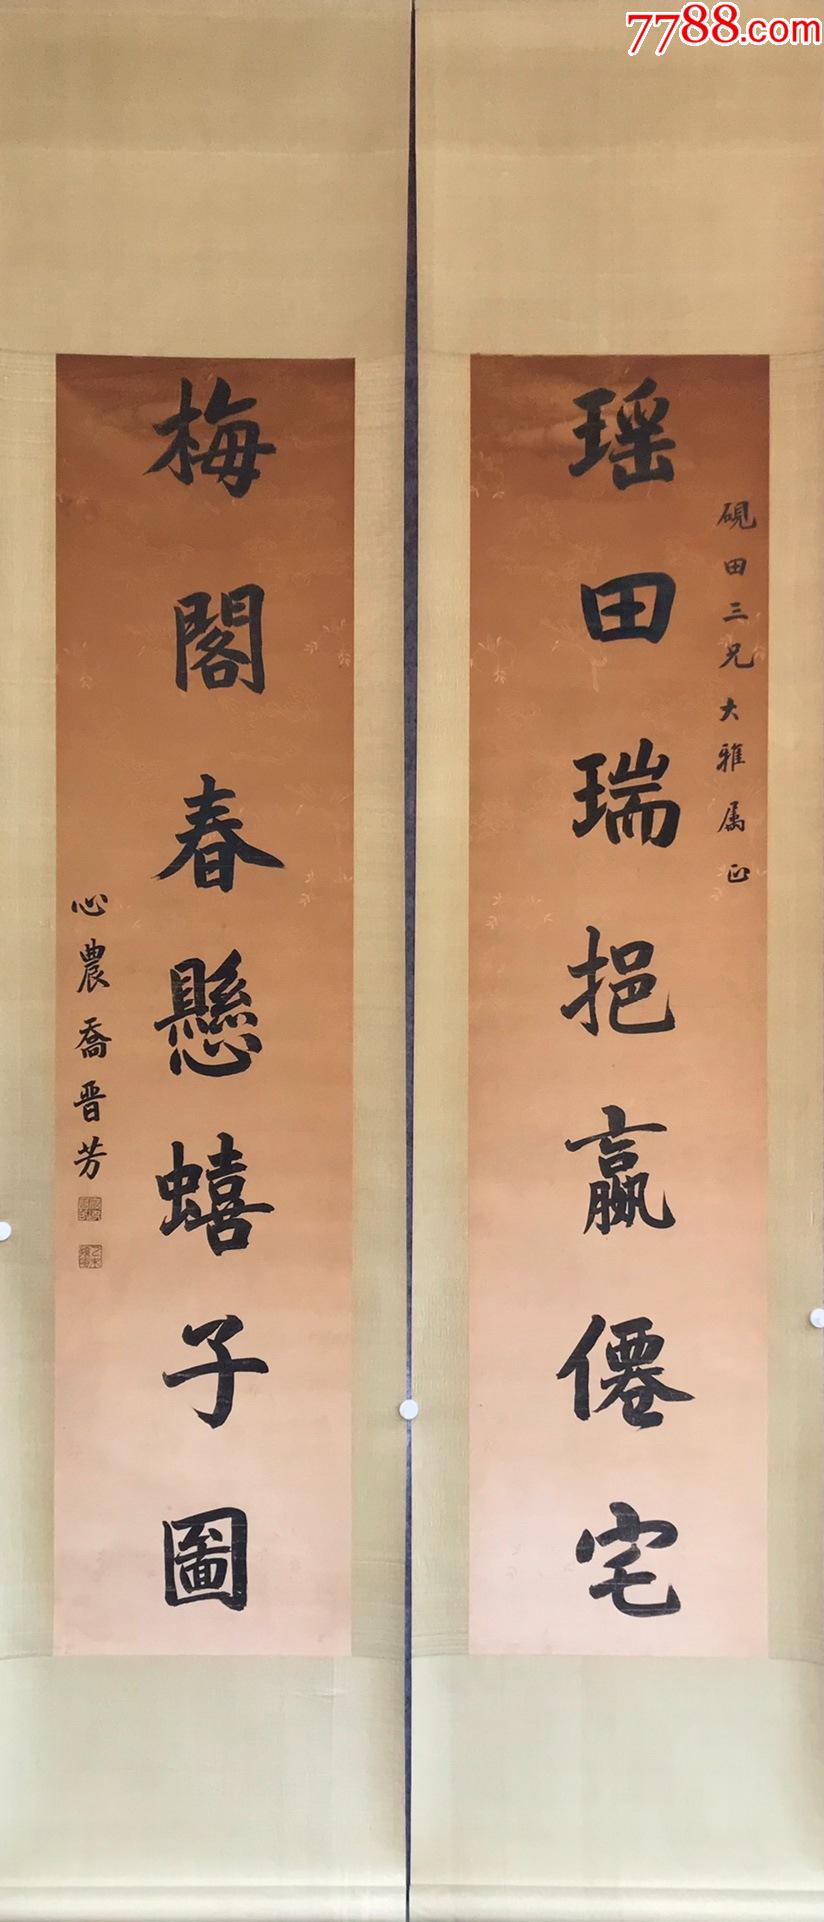 7788.com
硯田三兄大雅属正
瑶田瑞挹嬴僊宅
梅閣春懸蟢子圖
心農喬晋芳